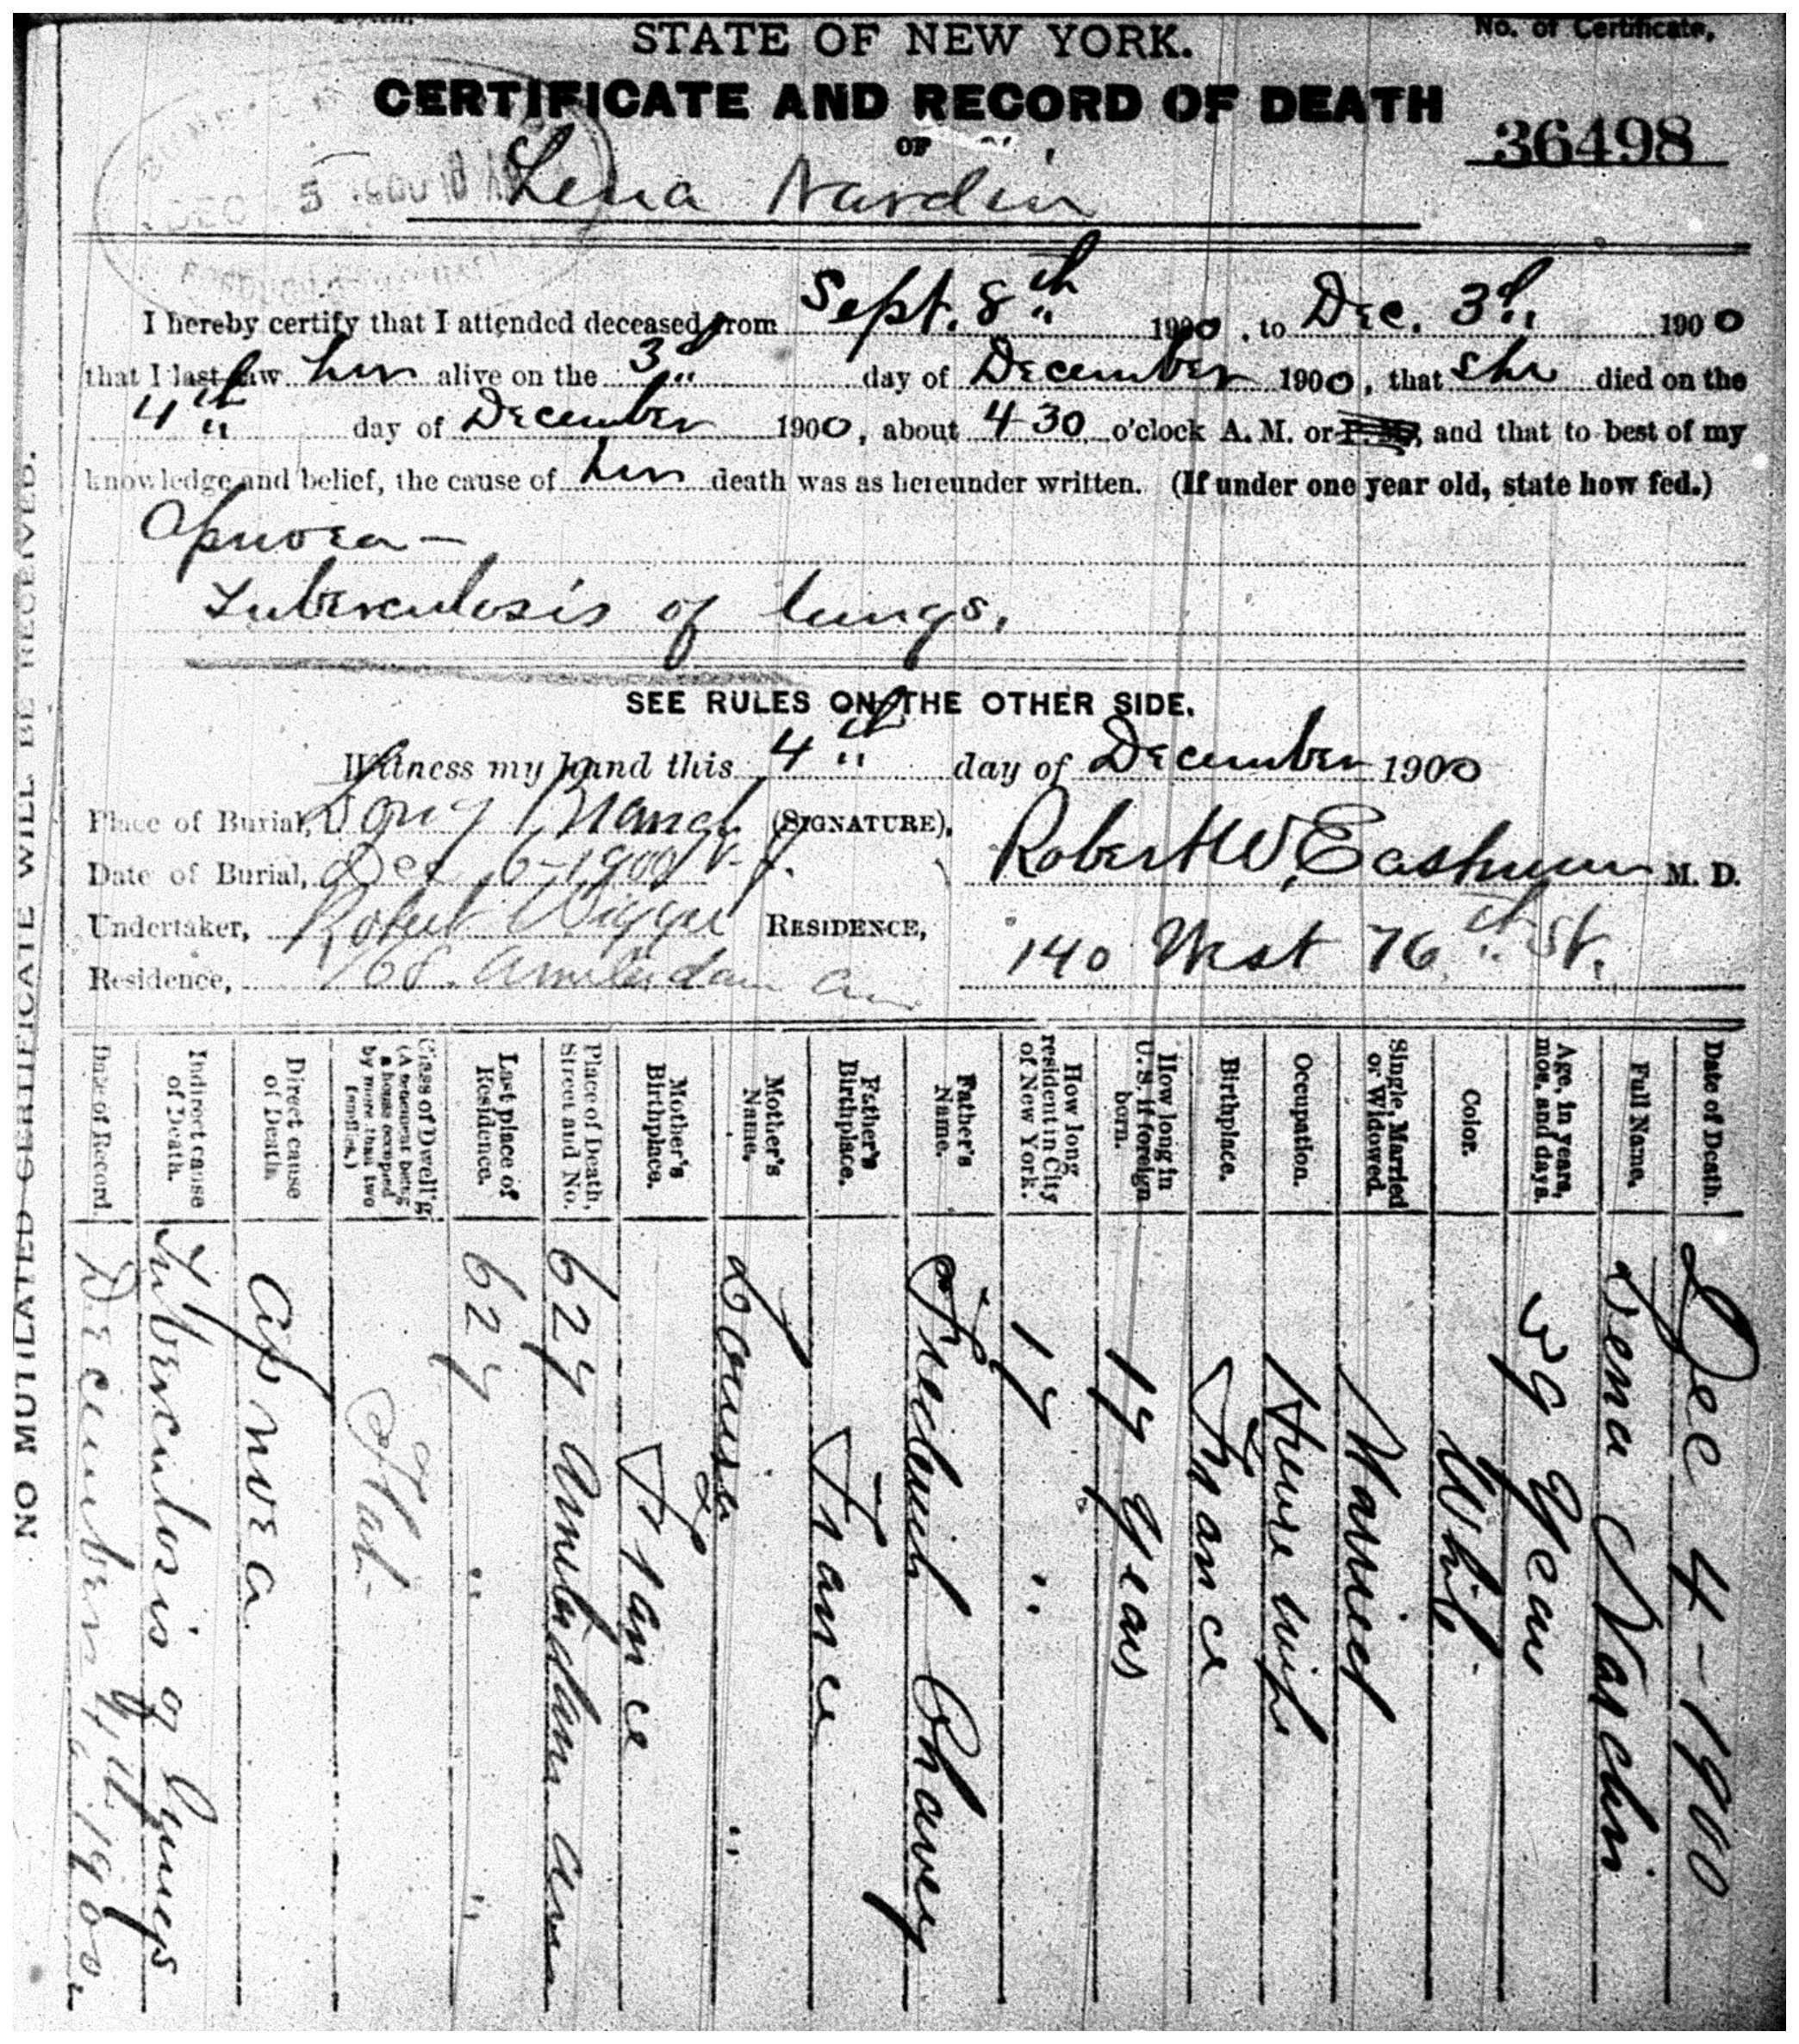 No. of Certificate,
STATE OF NEW YORK.
CERTIFICATE AND RECORD OF DEATH
36498
OF
Lena Nardin
DEC - 5 1900 10 AM
I hereby certify that I attended deceased from Sept. 8th 1900, to Dec. 3d 1900
that I last saw her alive on the 3d day of December 1900, that she died on the
4th day of December 1900, about 4 30 o'clock A. M. or P. M., and that to best of my
knowledge and belief, the cause of her death was as hereunder written. (If under one year old, state how fed.)
Apnoea -
Tuberculosis of lungs.
SEE RULES ON THE OTHER SIDE.
Witness my hand this 4th day of December 1900
Place of Burial, Long Branch N. J. (SIGNATURE),
Date of Burial, Dec 6 - 1900 Robert W. Eastman M. D.
Undertaker, Robert RESIDENCE,
Residence, 768 Amsterdam Ave 140 West 76th St.
NO MUTILATED CERTIFICATE WILL BE RECEIVED.
Date of Death. Dec 4 - 1900
Full Name. Lena Nardin
Age, in years, mos. and days. 39 Years
Color. White
Single, Married or Widowed. Married
Occupation. House wife
Birthplace. France
How long in U. S. if foreign born. 17 years
How long resident in City of New York. 17 "
Father's Name. Frederick Chavey
Father's Birthplace. France
Mother's Name. Louisa "
Mother's Birthplace. France
Place of Death, Street and No. 627 Amsterdam Ave
Last place of Residence. 627 " "
Class of Dwell'g (A tenement being a house occupied by more than two families.) Flat -
Direct cause of Death. Apnoea
Indirect cause of Death. Tuberculosis of Lungs
Date of Record December 4th 1900.